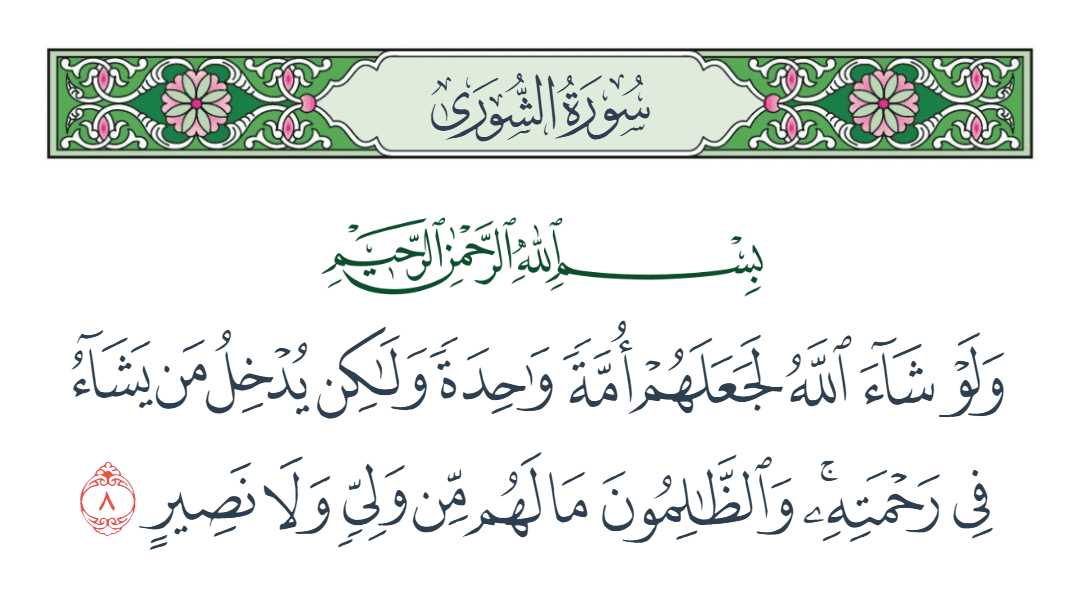 سُورَةُ الشُّورَىٰ
بِسْمِ ٱللَّهِ ٱلرَّحْمَٰنِ ٱلرَّحِيمِ
وَلَوْ شَآءَ ٱللَّهُ لَجَعَلَهُمْ أُمَّةً وَٰحِدَةً وَلَٰكِن يُدْخِلُ مَن يَشَآءُ
فِى رَحْمَتِهِۦ ۚ وَٱلظَّٰلِمُونَ مَا لَهُم مِّن وَلِىٍّ وَلَا نَصِيرٍ ٨